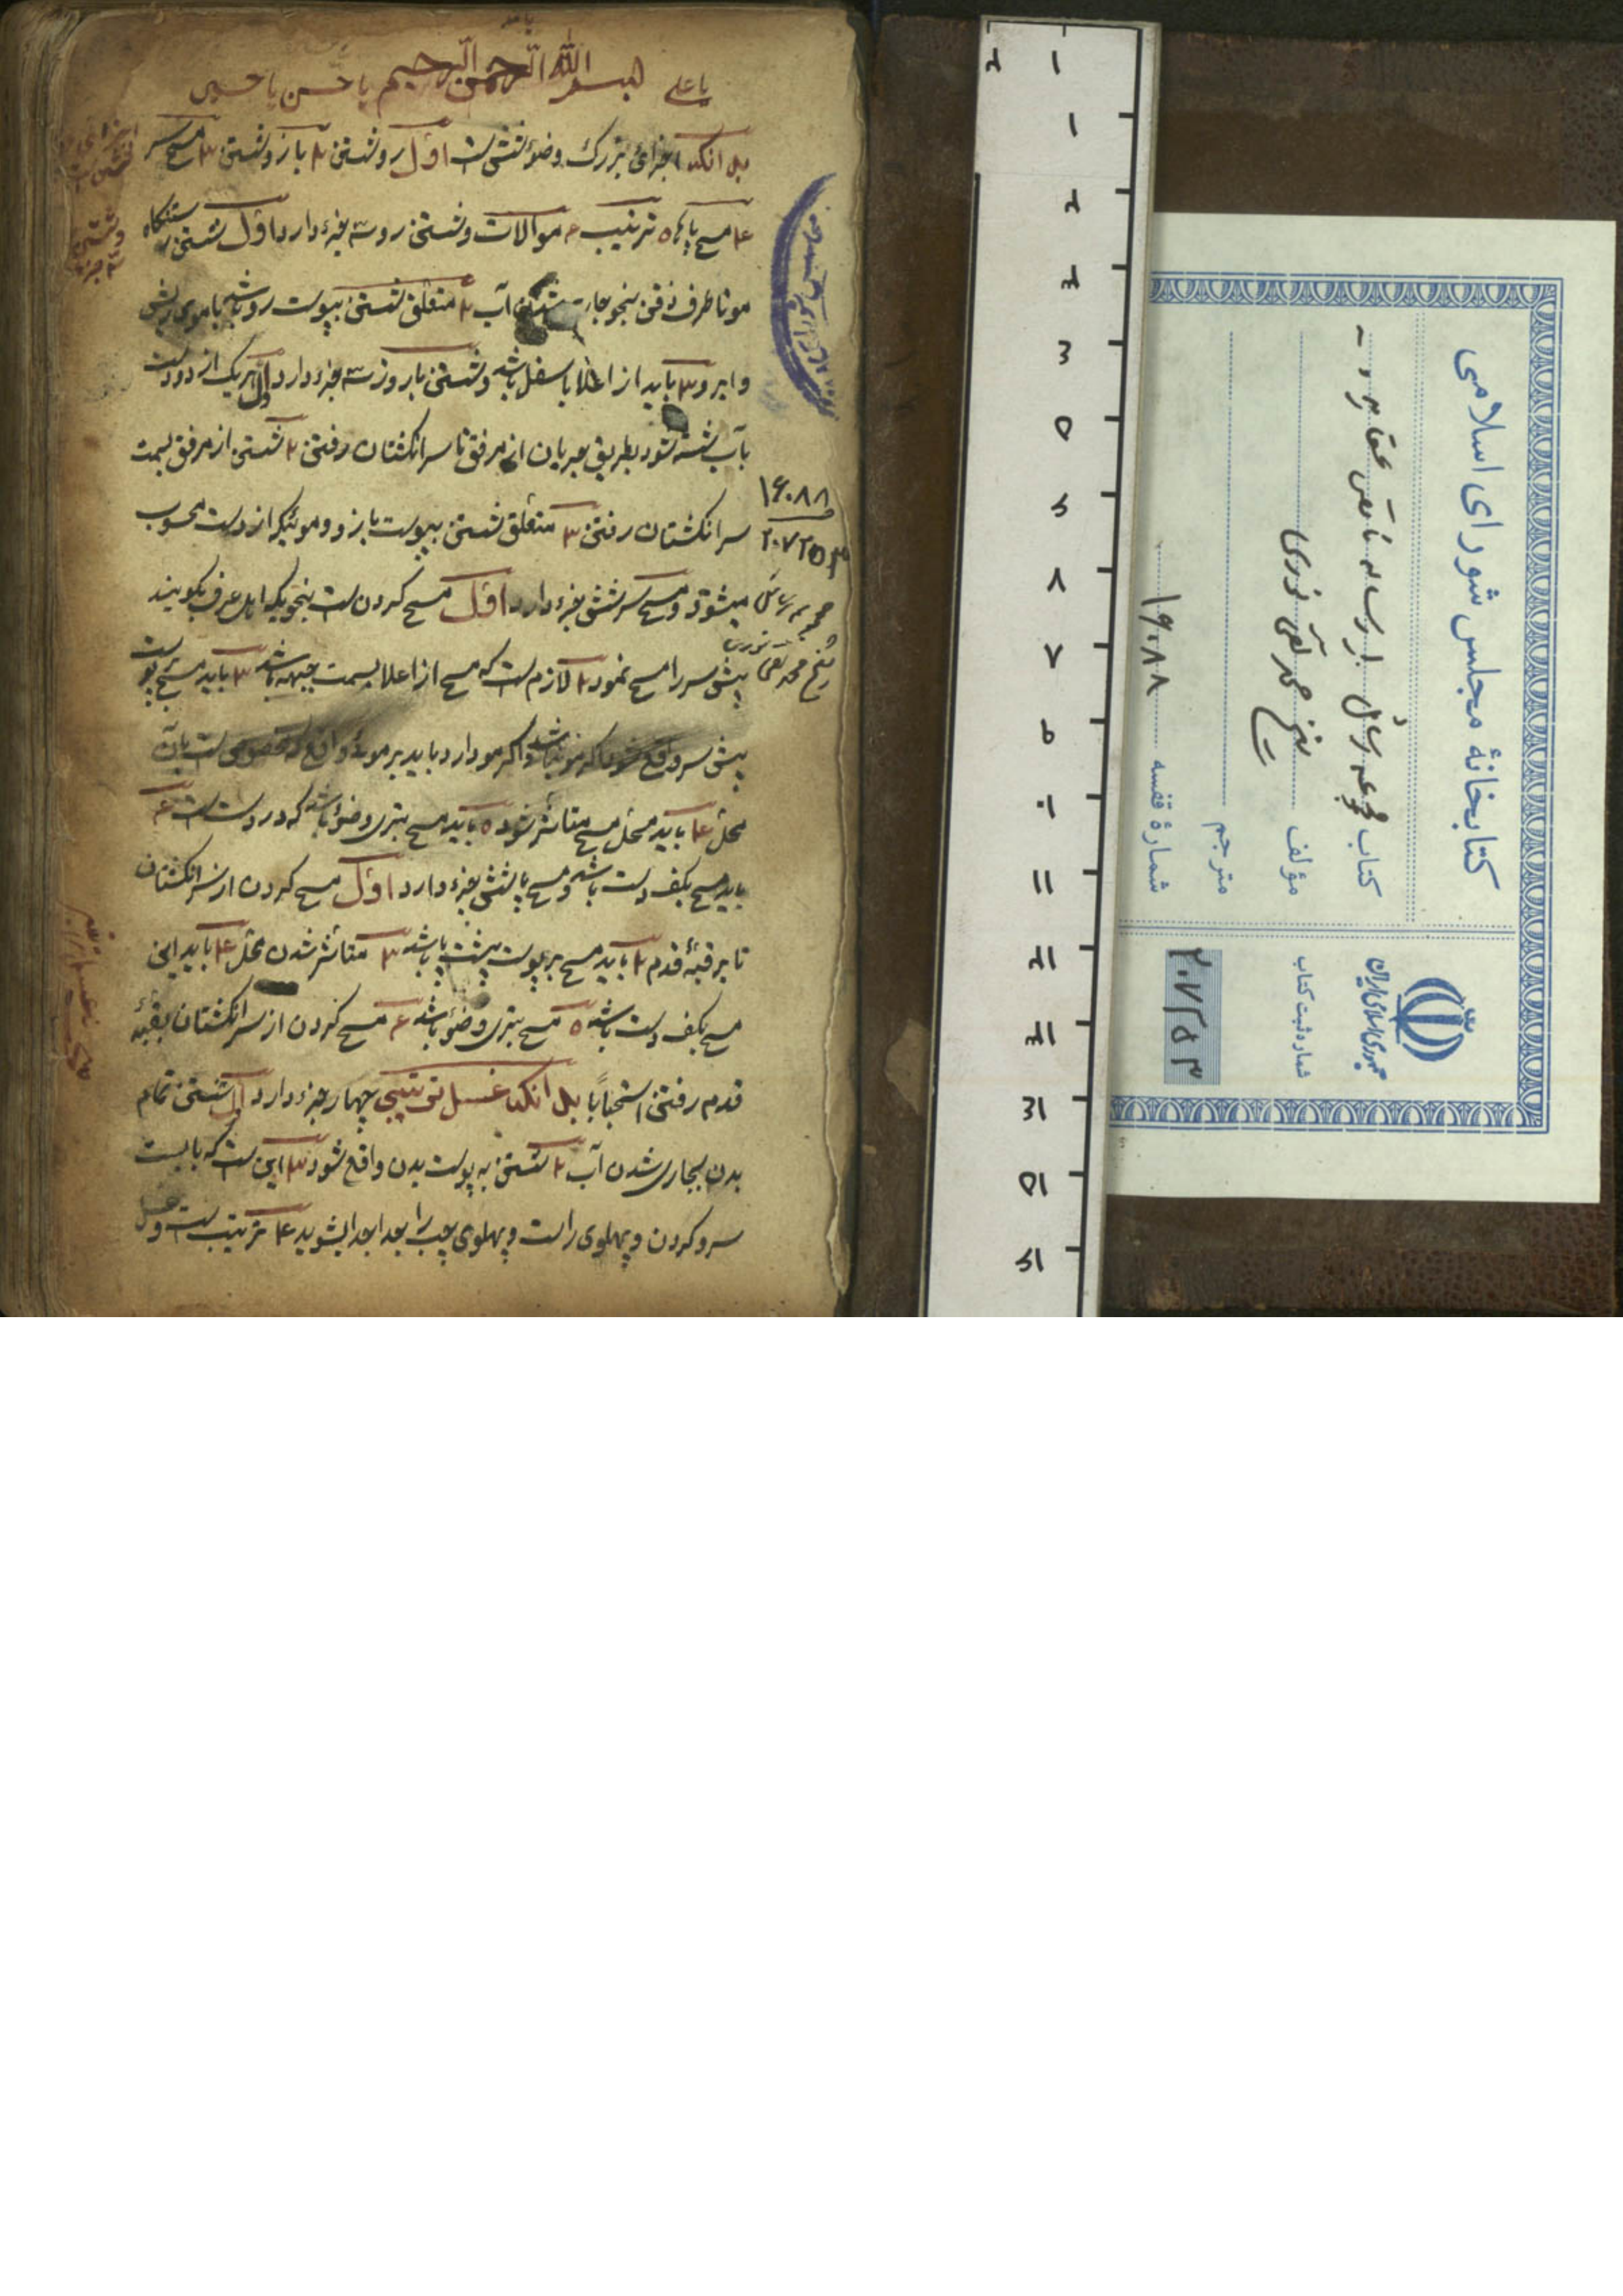 یا علی بسم الله الرحمن الرحیم یا حسن یا حسین
بدانکه اجزای بزرک وضوء شش است اول رو شستن ۲ بازو شستن ۳ مسح سر
۴ مسح پاها ۵ ترتیب ۶ موالات و شستن رو سه جزء دارد اول شستن رستنکاه
مو تا طرف ذقن بنحو جاری شدن آب ۲ متعلق شستن بپوست رو باشد یا موی ریش
و ابرو ۳ باید از اعلا باسفل باشد و شستن بازو سه جزء دارد اول هریک از دو دست
بآب شسته شود بطریق جریان از مرفق تا سر انکشتان رفتن ۲ شستن از مرفق بسمت
سر انکشتان رفتن ۳ متعلق شستن بپوست بازو و موئیکه از دست محسوب
میشود و مسح سر شش جزء دارد اول مسح کردن است بنحویکه اهل عرف بکویند
پیش سر را مسح نمود ۲ لازم است که مسح از اعلا بسمت جبهه باشد ۳ باید مسح بپوست
پیش سر واقع شود اکر مو نباشد و اکر مو دارد باید بر موی واقع که مخصوص است بآن
محل ۴ باید محل مسح متأثر شود ۵ باید مسح بتری وضوء باشد که در دست است ۶
باید مسح بکف دست باشد و مسح پا شش جزء دارد اول مسح کردن از سر انکشتان
تا بر قبهٔ قدم ۲ باید مسح بر پوست پشت پا باشد ۳ متأثر شدن محل ۴ باید این
مسح بکف دست باشد ۵ مسح بتری وضوء باشد ۶ مسح کردن از سر انکشتان بقبهٔ
قدم رفتن استحباباً بدانکه غسل ترتیبی چهار جزء دارد اول شستن تمام
بدن بجاری شدن آب ۲ شستن به پوست بدن واقع شود ۳ این است که بایست
سر و کردن و پهلوی راست و پهلوی چپ را جدا جدا بشوید ۴ ترتیب است و غسل
۱۶۰۸۸
۲۰۷۲۵۳
مجموعه رسائل
شیخ محمد تقی نوری
کتابخانهٔ مجلس شورای اسلامی
کتاب مجموعه رسائل
مؤلف شیخ محمد تقی نوری
مترجم
شمارهٔ قفسه ۱۶۰۸۸
جمهوری اسلامی ایران
شماره ثبت کتاب
۲۰۷۲۵۳